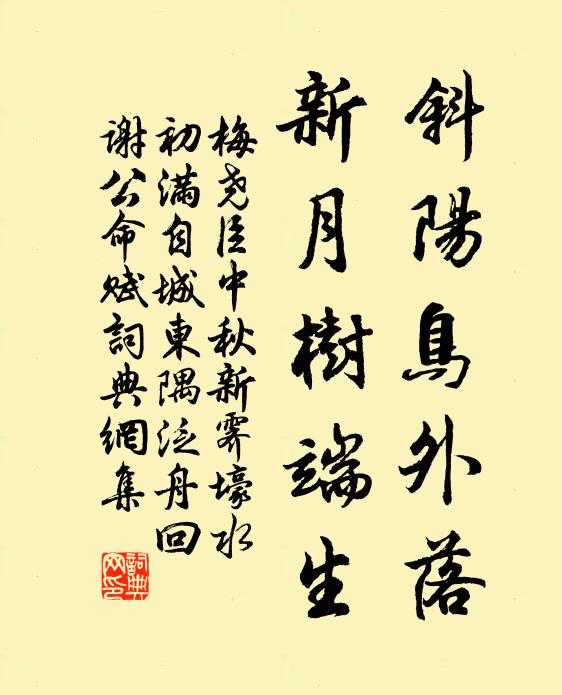 斜陽鳥外落
新月樹端生
梅堯臣中秋新霽壕水
初滿自城東隅泛舟回
謝公命賦詞典網集
詞典網印